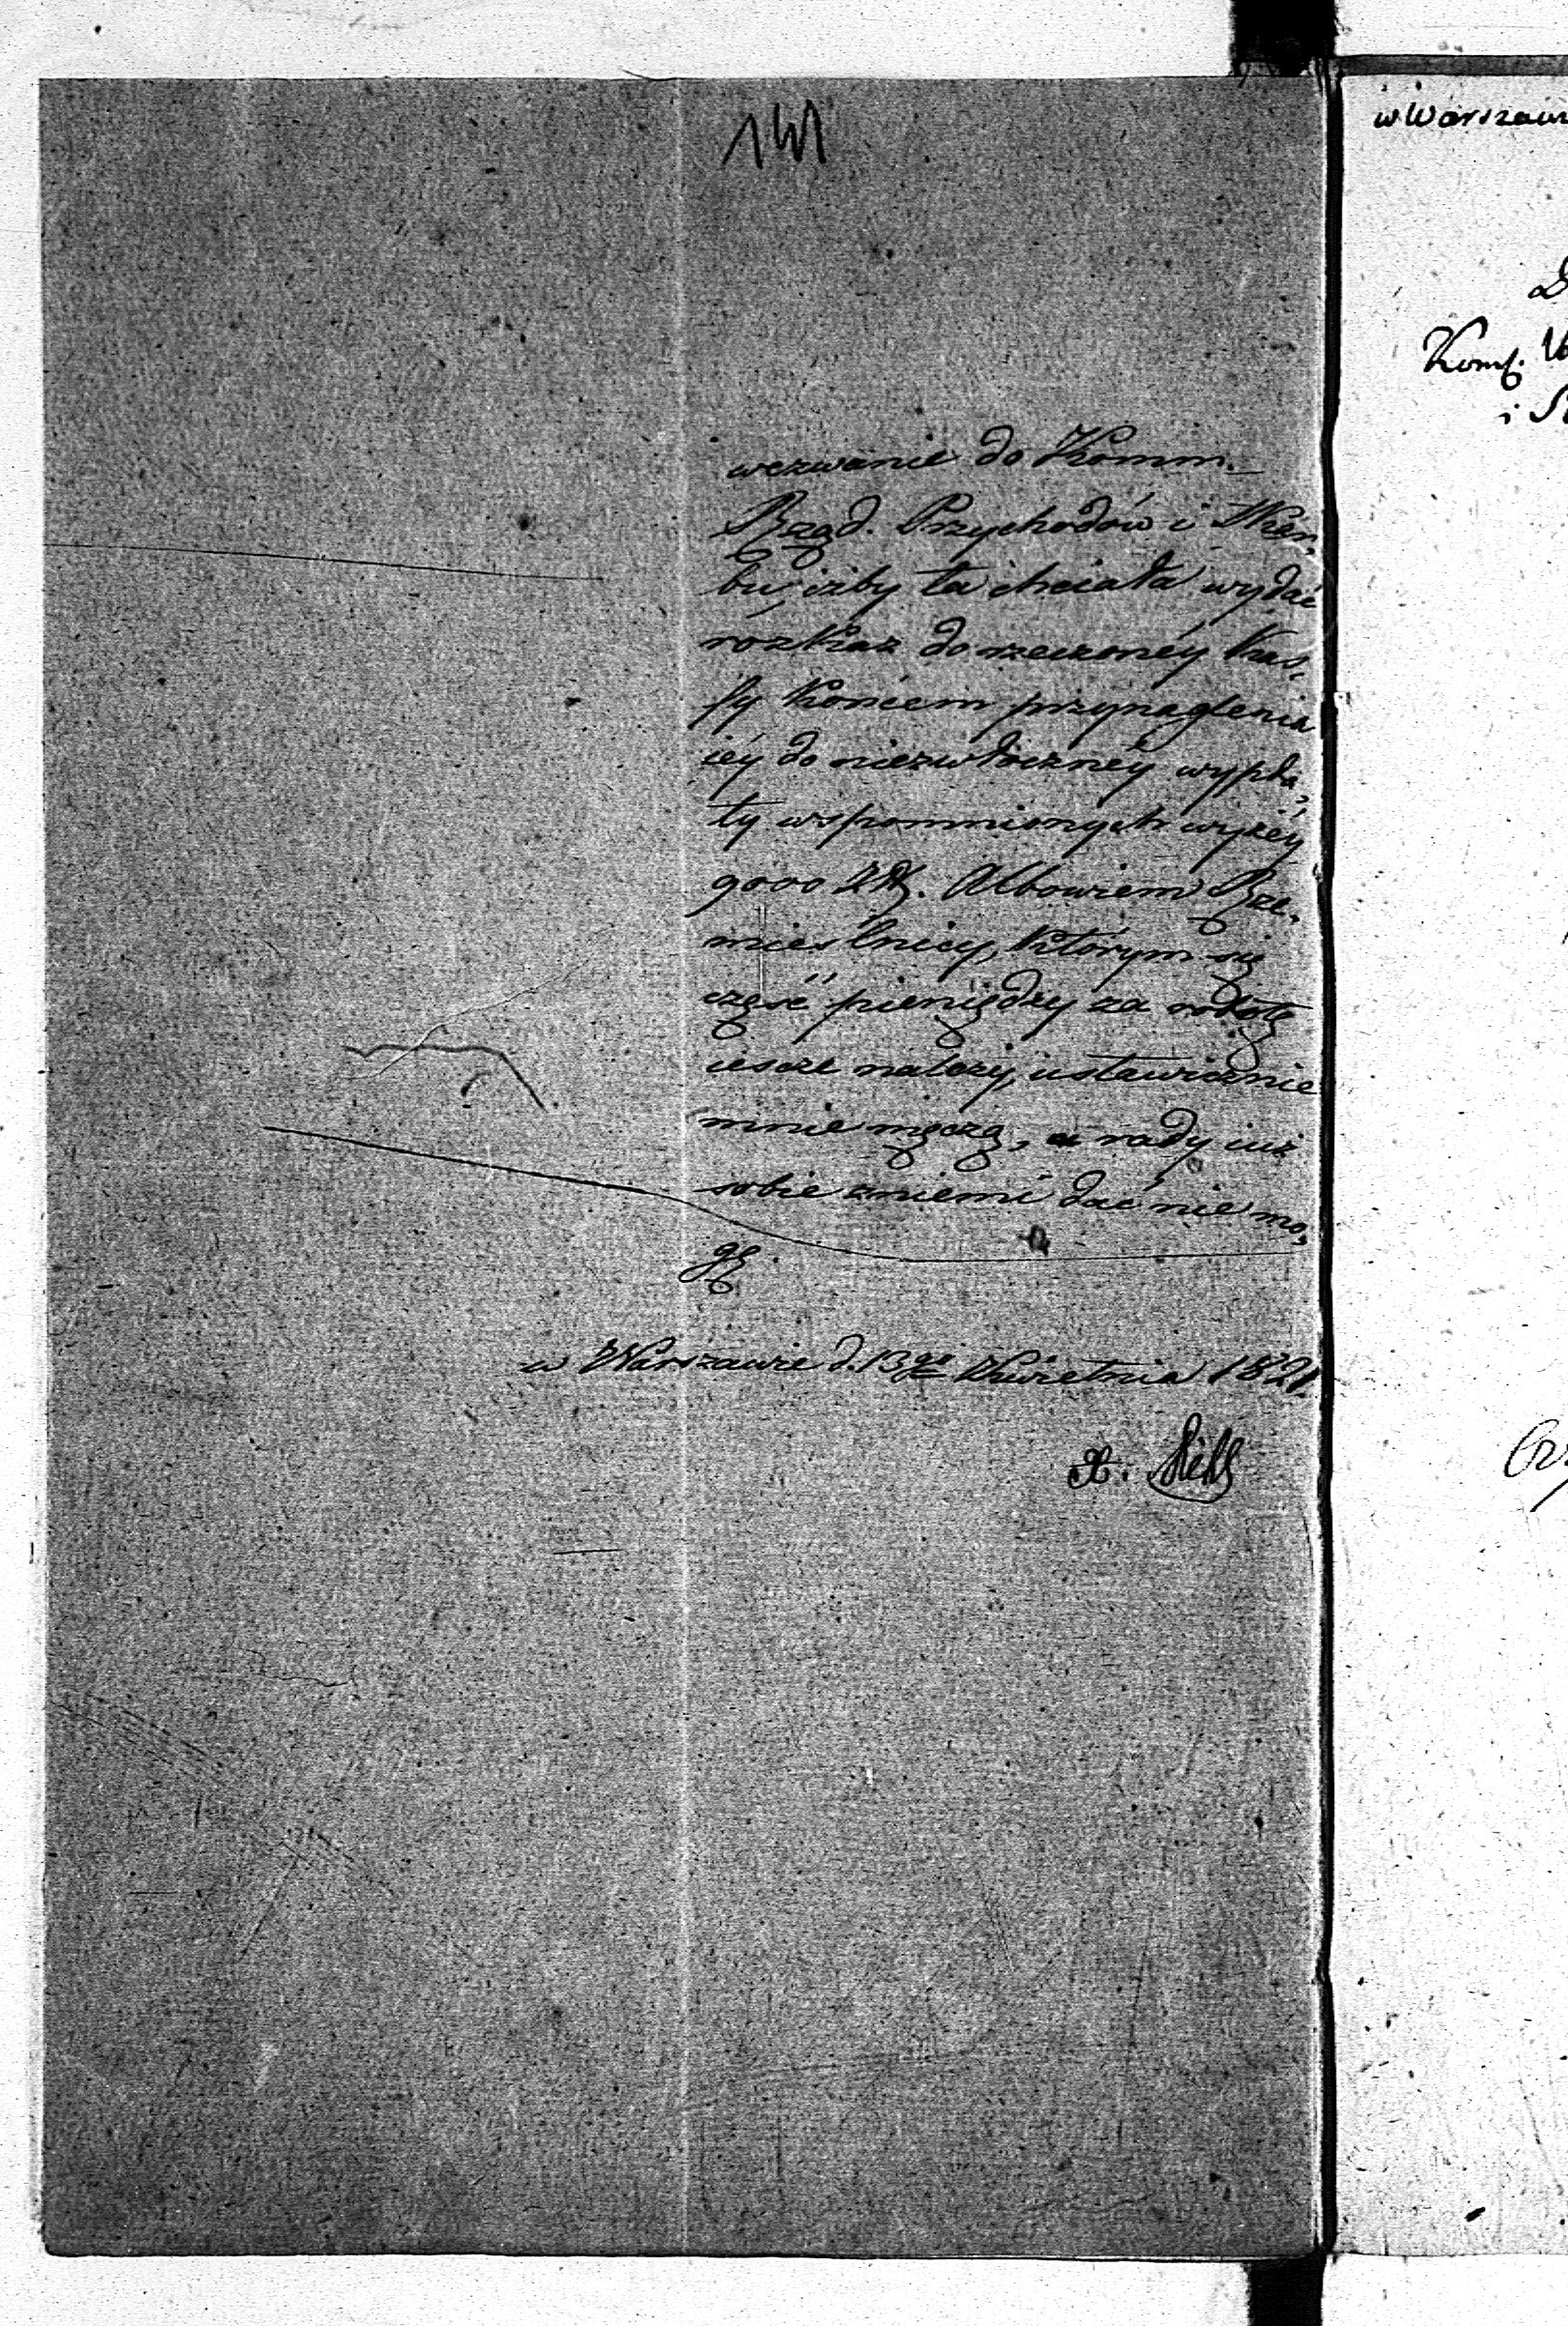 141
wezwanie do Komm.
Rząd. Przychodów i Skar,
bu, iżby ta chciała wydać
rozkaz do rzeczonéy Kas,
sy końcem przynaglenia
iéy do niezwłocznéy wypła,
ty wspomnionych wyżéy
9000 Złt. Albowiem Rze,
mieślnicy, którym się
część pieniędzy za robotę
iescze należy, ustawicznie
mnie męczą, a rady iuż
sobie zniemi dać nie mo,
gę.
w Warszawie d. 13go Kwietnia 1821.
w Warszaw
Kom.
i